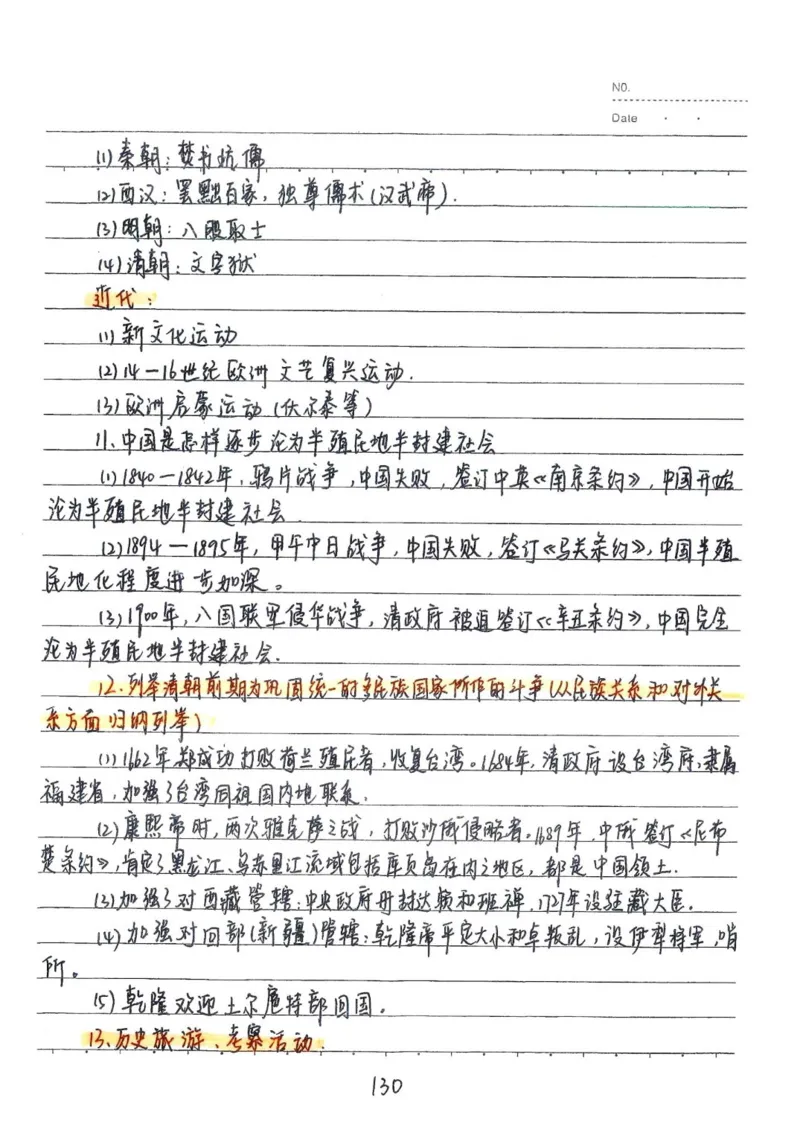 NO.
Date
(1)秦朝：焚书坑儒
(2)西汉：罢黜百家，独尊儒术(汉武帝).
(3)明朝：八股取士
(4)清朝：文字狱
近代：
(1)新文化运动
(2)14－16世纪欧洲文艺复兴运动.
(3)欧洲启蒙运动(伏尔泰等)
11、中国是怎样逐步沦为半殖民地半封建社会
(1)1840－1842年，鸦片战争，中国失败，签订中英《南京条约》，中国开始
沦为半殖民地半封建社会.
(2)1894－1895年，甲午中日战争，中国失败，签订《马关条约》，中国半殖
民地化程度进步加深。
(3)1900年，八国联军侵华战争，清政府被迫签订《辛丑条约》，中国完全
沦为半殖民地半封建社会.
12.列举清朝前期为巩固统一的多民族国家所作的斗争(从民族关系和对外关
系方面归纳列举)
(1)1662年郑成功打败荷兰殖民者，收复台湾。1684年，清政府设台湾府，隶属
福建省，加强了台湾同祖国内地联系.
(2)康熙帝时，两次雅克萨之战，打败沙俄侵略者。1689年，中俄签订《尼布
楚条约》，肯定了黑龙江、乌苏里江流域包括库页岛在内之地区，都是中国领土.
(3)加强了对西藏管辖：中央政府册封达赖和班禅，1727年设驻藏大臣.
(4)加强对回部(新疆)管辖：乾隆帝平定大小和卓叛乱，设伊犁将军，哨
所。
(5)乾隆欢迎土尔扈特部回国.
13、历史旅游、考察活动.
130